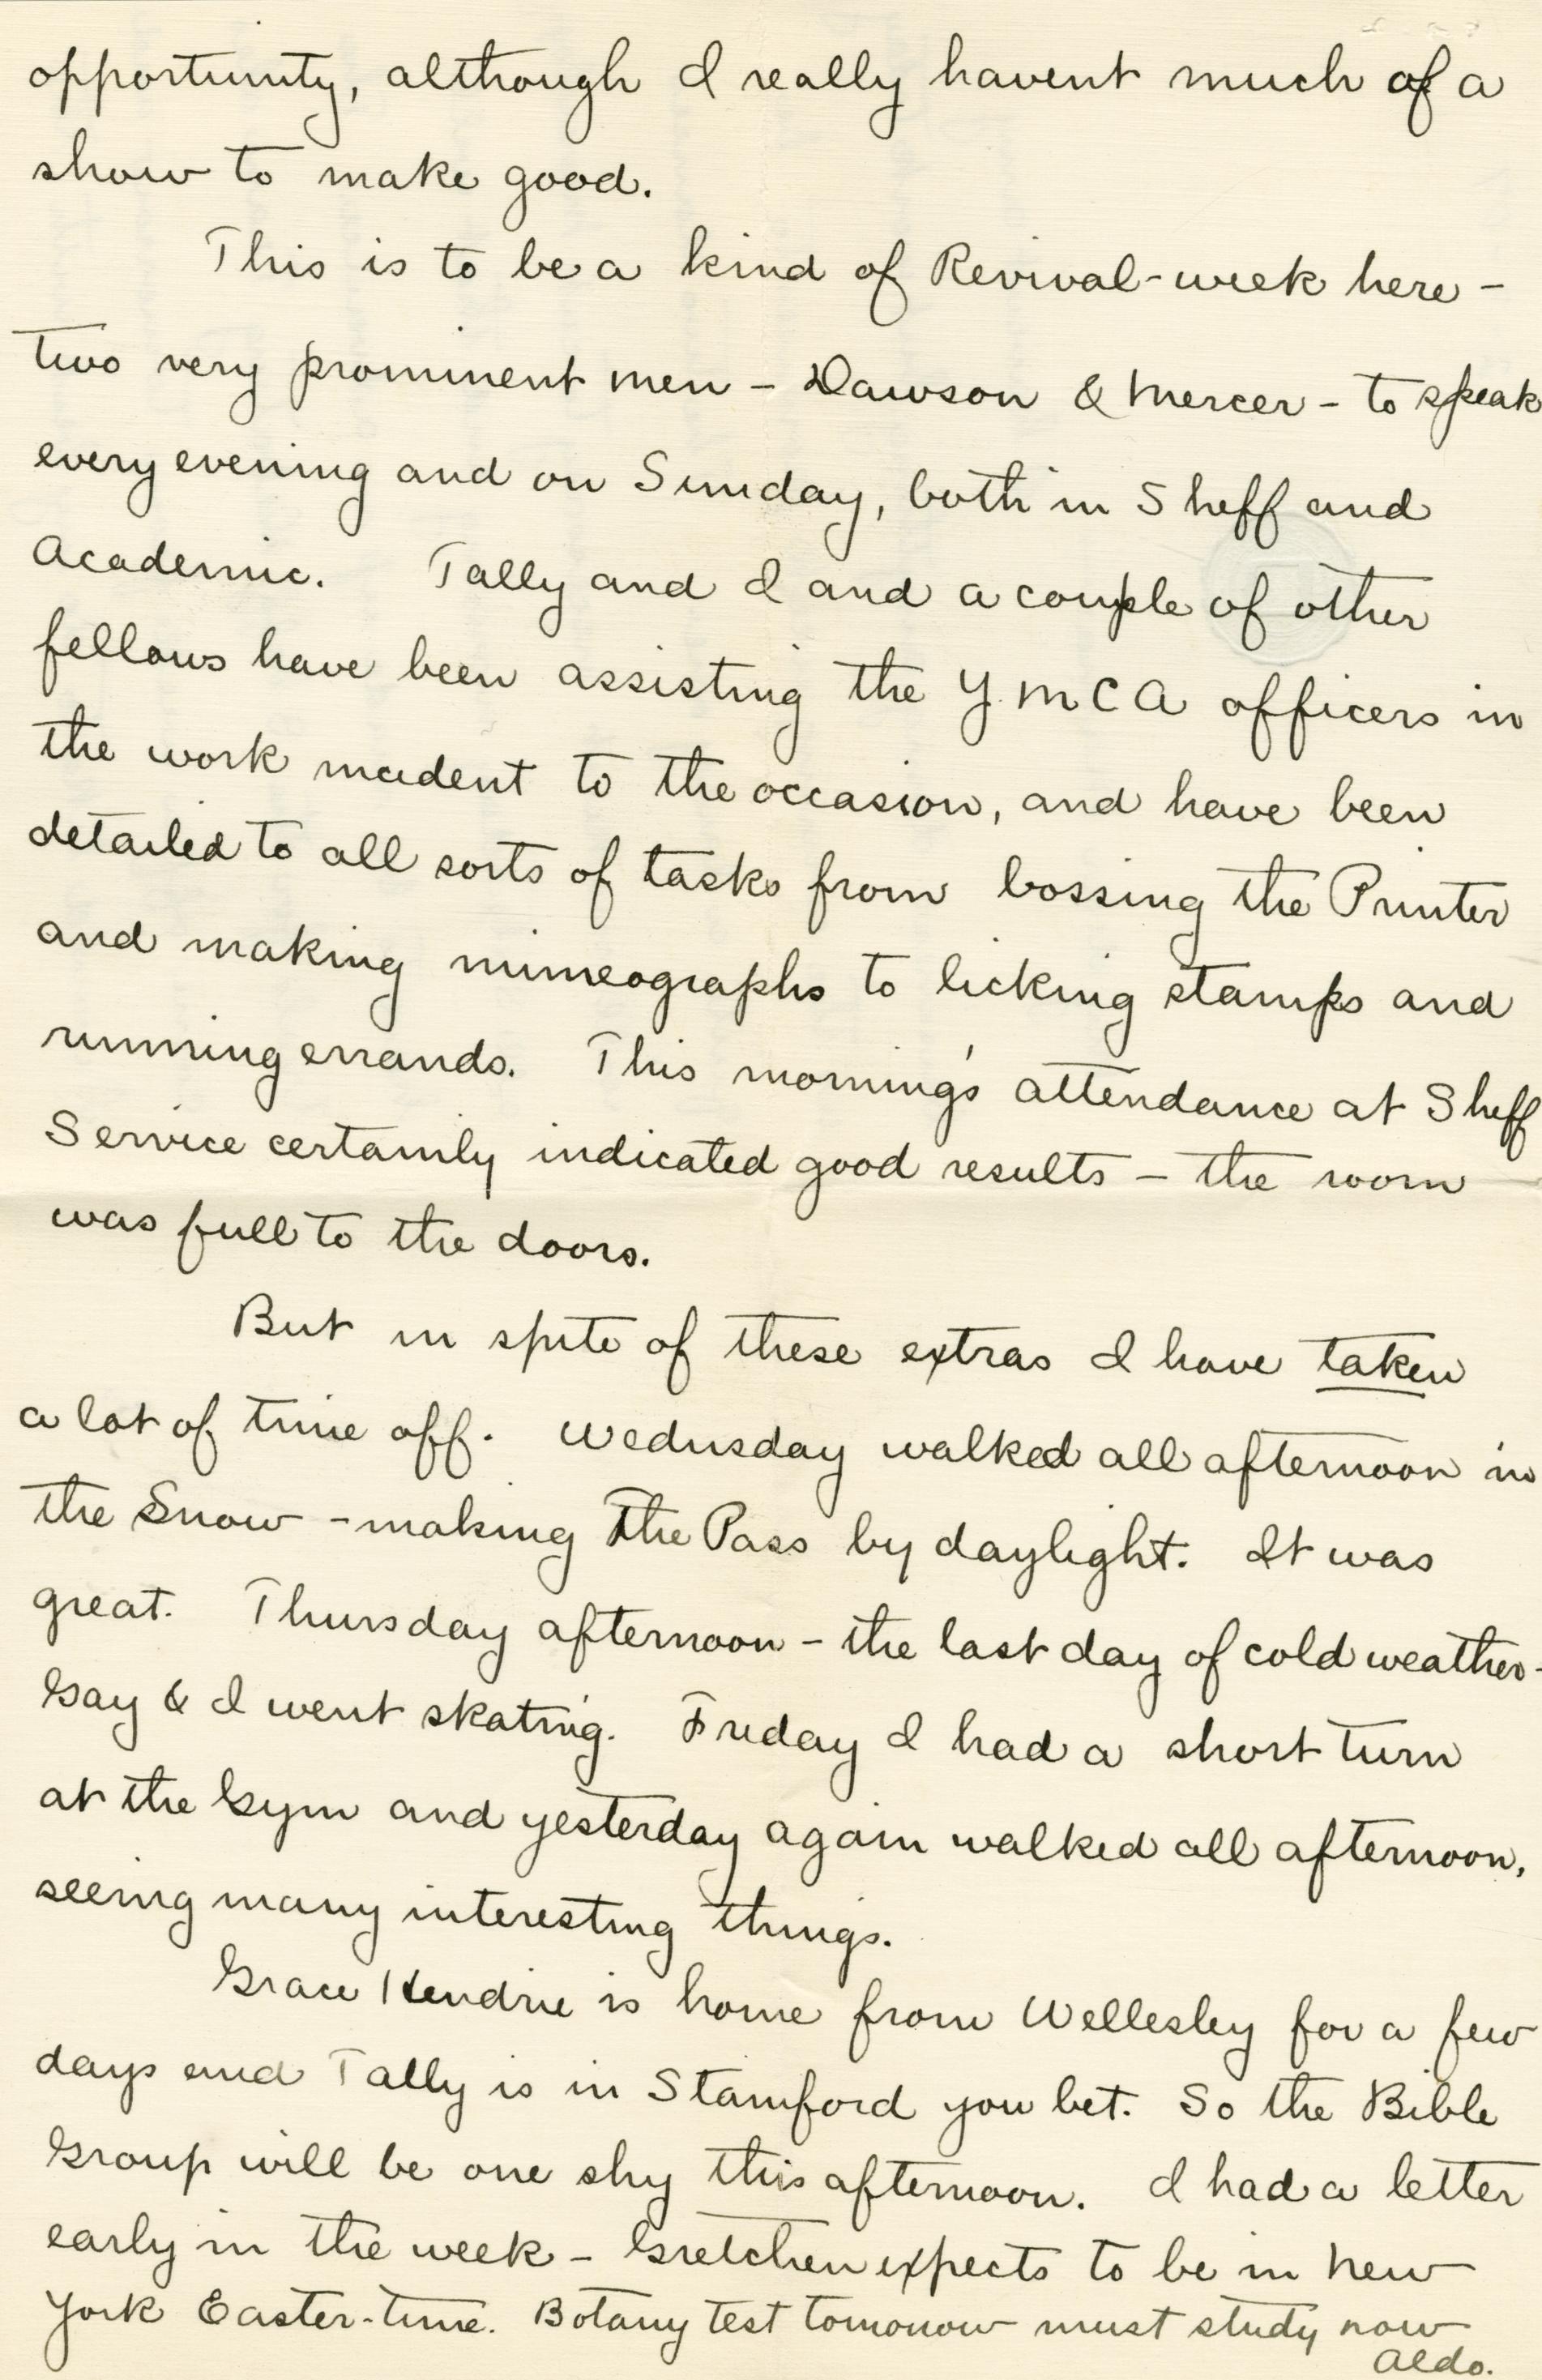 opportunity, although I really havent much of a
show to make good.
This is to be a kind of Revival-week here -
two very prominent men - Dawson & Mercer - to speak
every evening and on Sunday, both in Sheff and
Academic. Tally and I and a couple of other
fellows have been assisting the Y.M.C.A officers in
the work incident to the occasion, and have been
detailed to all sorts of tasks from bossing the Printer
and making mimeographs to licking stamps and
running errands. This morning's attendance at Sheff
Service certainly indicated good results - the room
was full to the doors.
But in spite of these extras I have taken
a lot of time off. Wednsday walked all afternoon in
the Snow - making The Pass by daylight. It was
great. Thursday afternoon - the last day of cold weather -
Gay & I went skating. Friday I had a short turn
at the Gym and yesterday again walked all afternoon,
seeing many interesting things.
Grace Hendrie is home from Wellesley for a few
days and Tally is in Stamford you bet. So the Bible
Group will be one shy this afternoon. I had a letter
early in the week - Gretchen expects to be in New
York Easter-time. Botany test tomorrow must study now
Aldo.